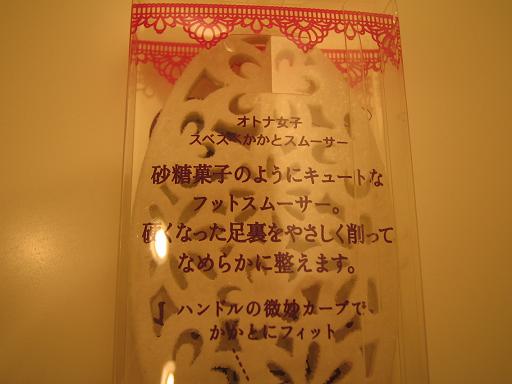 オトナ女子
スベスベかかとスムーサー
砂糖菓子のようにキュートな
フットスムーサー。
硬くなった足裏をやさしく削って
なめらかに整えます。
ハンドルの微妙カーブで、
かかとにフィット